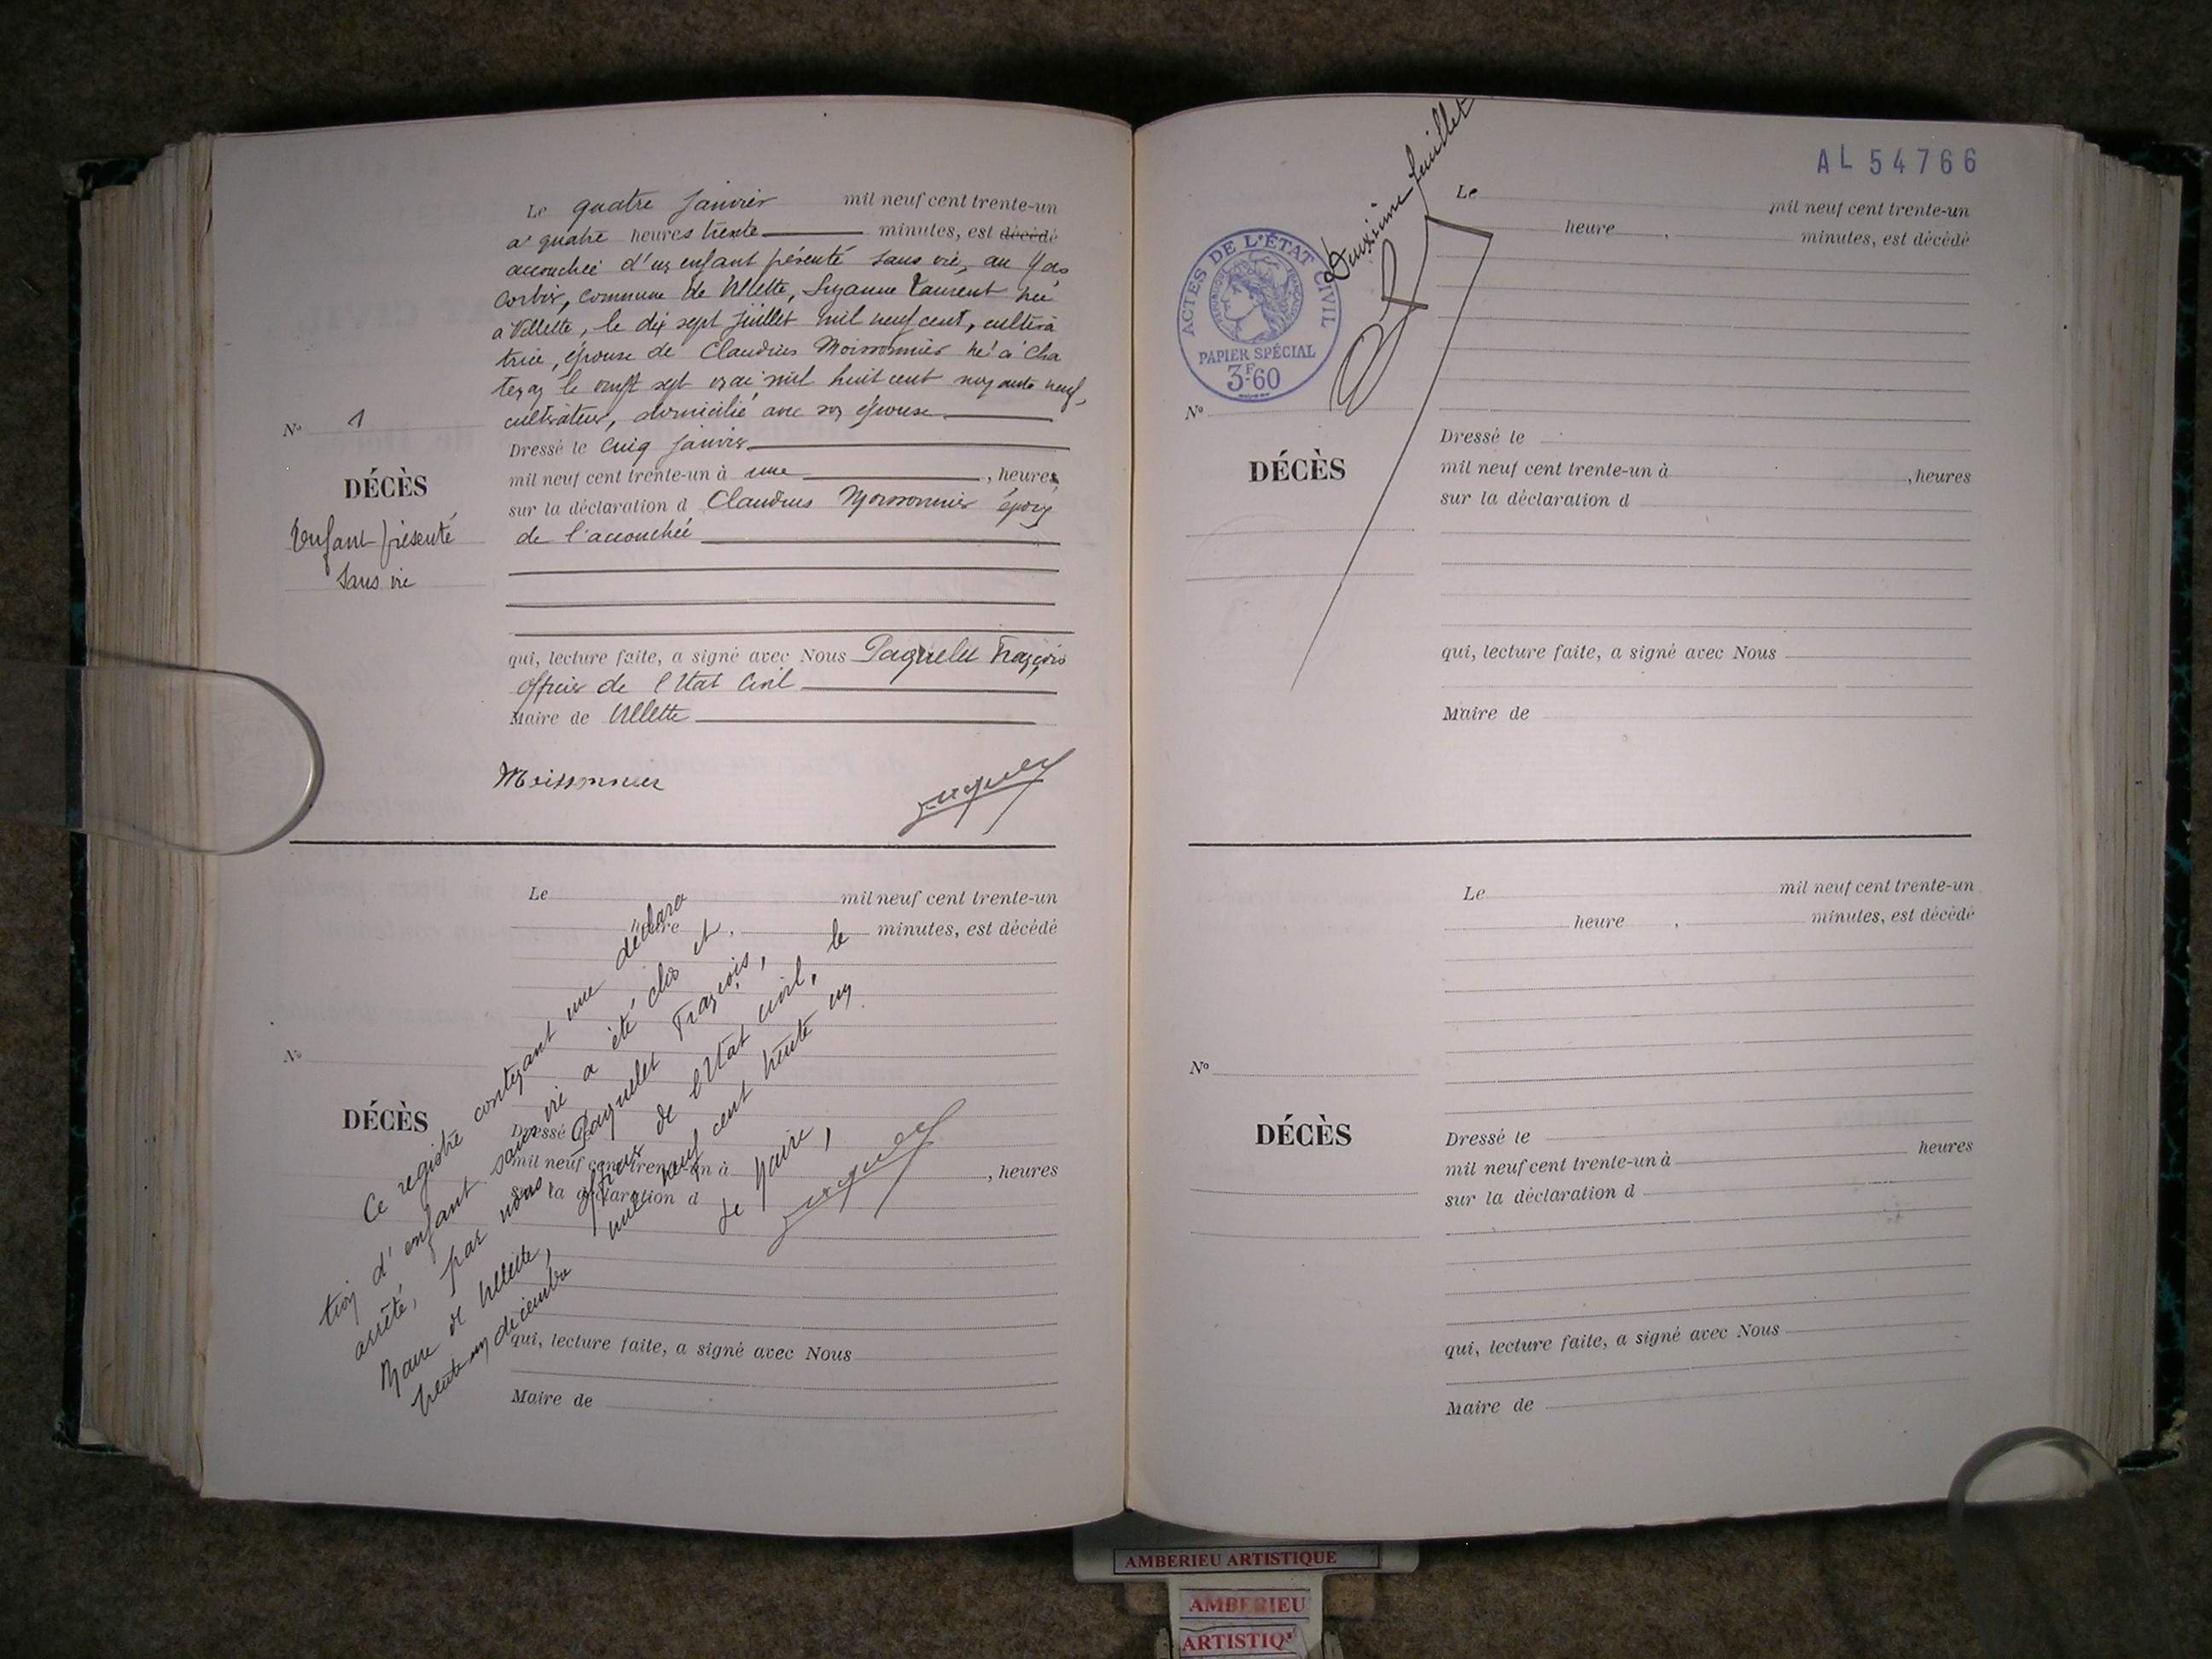 Le quatre Janvier mil neuf cent trente-un
à quatre heures trente minutes, est décédé
accouchée d'un enfant présenté sans vie, au
Corbis, commune de Villette, Suzanne Laurent née
à Villette, le dix sept juillet mil neuf cent, cultiva
trice, épouse de Claudius Moissonnier né à Cha
tenay le vingt sept mai mil huit cent nonante neuf,
cultivateur, domicilié avec son épouse
Dressé le Cinq Janvier
mil neuf cent trente-un à une , heures
sur la déclaration d Claudius Moissonnier époux
de l'accouchée
qui, lecture faite, a signé avec Nous Paquelet François
Officier de l'Etat Civil
Maire de Villette
Moissonnier
N° 1
DÉCÈS
Enfant présenté
Sans vie
Le mil neuf cent trente-un
heure , minutes, est décédé
N°
DÉCÈS
Dressé le
mil neuf cent trente-un à , heures
sur la déclaration d
qui, lecture faite, a signé avec Nous
Maire de
Ce registre contenant une déclara
tion d'enfant sans vie a été clos et
arrêté, par nous, Paquelet François,
Maire de Villette, officier de l'Etat civil, le
trente un décembre mil neuf cent trente un
Le Maire,
AL 54766
Deuxième feuillet
ACTES DE L'ÉTAT CIVIL
RÉPUBLIQUE FRANÇAISE
PAPIER SPÉCIAL
3F60
Le mil neuf cent trente-un
heure , minutes, est décédé
N°
DÉCÈS
Dressé le
mil neuf cent trente-un à , heures
sur la déclaration d
qui, lecture faite, a signé avec Nous
Maire de
Le mil neuf cent trente-un
heure , minutes, est décédé
N°
DÉCÈS
Dressé le
mil neuf cent trente-un à heures
sur la déclaration d
qui, lecture faite, a signé avec Nous
Maire de
AMBERIEU ARTISTIQUE
AMBERIEU
ARTISTIQ